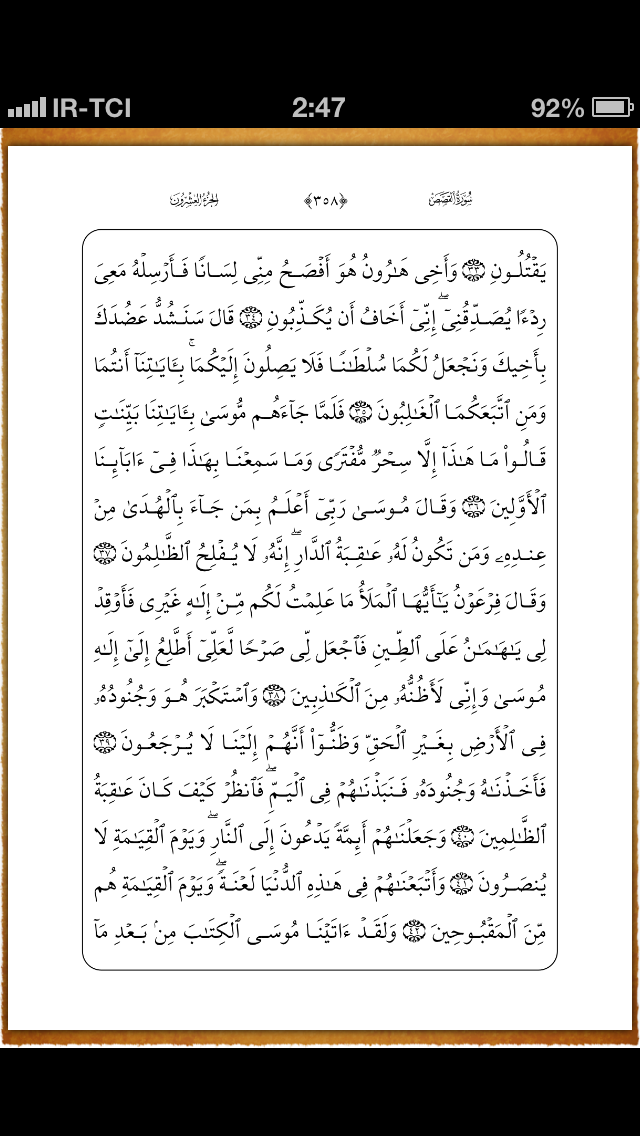 IR-TCI 2:47 92%
سُورَةُ القَصَصِ ﴿٣٥٨﴾ الجُزْءُ العِشْرُونَ
يَقْتُلُونِ ٣٣ وَأَخِى هَٰرُونُ هُوَ أَفْصَحُ مِنِّى لِسَانًا فَأَرْسِلْهُ مَعِىَ
رِدْءًا يُصَدِّقُنِىٓ ۖ إِنِّىٓ أَخَافُ أَن يُكَذِّبُونِ ٣٤ قَالَ سَنَشُدُّ عَضُدَكَ
بِأَخِيكَ وَنَجْعَلُ لَكُمَا سُلْطَٰنًا فَلَا يَصِلُونَ إِلَيْكُمَا ۚ بِـَٔايَٰتِنَآ أَنتُمَا
وَمَنِ ٱتَّبَعَكُمَا ٱلْغَٰلِبُونَ ٣٥ فَلَمَّا جَآءَهُم مُّوسَىٰ بِـَٔايَٰتِنَا بَيِّنَٰتٍ
قَالُوا۟ مَا هَٰذَآ إِلَّا سِحْرٌ مُّفْتَرًى وَمَا سَمِعْنَا بِهَٰذَا فِىٓ ءَابَآئِنَا
ٱلْأَوَّلِينَ ٣٦ وَقَالَ مُوسَىٰ رَبِّىٓ أَعْلَمُ بِمَن جَآءَ بِٱلْهُدَىٰ مِنْ
عِندِهِۦ وَمَن تَكُونُ لَهُۥ عَٰقِبَةُ ٱلدَّارِ ۖ إِنَّهُۥ لَا يُفْلِحُ ٱلظَّٰلِمُونَ ٣٧
وَقَالَ فِرْعَوْنُ يَٰٓأَيُّهَا ٱلْمَلَأُ مَا عَلِمْتُ لَكُم مِّنْ إِلَٰهٍ غَيْرِى فَأَوْقِدْ
لِى يَٰهَٰمَٰنُ عَلَى ٱلطِّينِ فَٱجْعَل لِّى صَرْحًا لَّعَلِّىٓ أَطَّلِعُ إِلَىٰٓ إِلَٰهِ
مُوسَىٰ وَإِنِّى لَأَظُنُّهُۥ مِنَ ٱلْكَٰذِبِينَ ٣٨ وَٱسْتَكْبَرَ هُوَ وَجُنُودُهُۥ
فِى ٱلْأَرْضِ بِغَيْرِ ٱلْحَقِّ وَظَنُّوٓا۟ أَنَّهُمْ إِلَيْنَا لَا يُرْجَعُونَ ٣٩
فَأَخَذْنَٰهُ وَجُنُودَهُۥ فَنَبَذْنَٰهُمْ فِى ٱلْيَمِّ ۖ فَٱنظُرْ كَيْفَ كَانَ عَٰقِبَةُ
ٱلظَّٰلِمِينَ ٤٠ وَجَعَلْنَٰهُمْ أَئِمَّةً يَدْعُونَ إِلَى ٱلنَّارِ ۖ وَيَوْمَ ٱلْقِيَٰمَةِ لَا
يُنصَرُونَ ٤١ وَأَتْبَعْنَٰهُمْ فِى هَٰذِهِ ٱلدُّنْيَا لَعْنَةً ۖ وَيَوْمَ ٱلْقِيَٰمَةِ هُم
مِّنَ ٱلْمَقْبُوحِينَ ٤٢ وَلَقَدْ ءَاتَيْنَا مُوسَى ٱلْكِتَٰبَ مِنۢ بَعْدِ مَآ